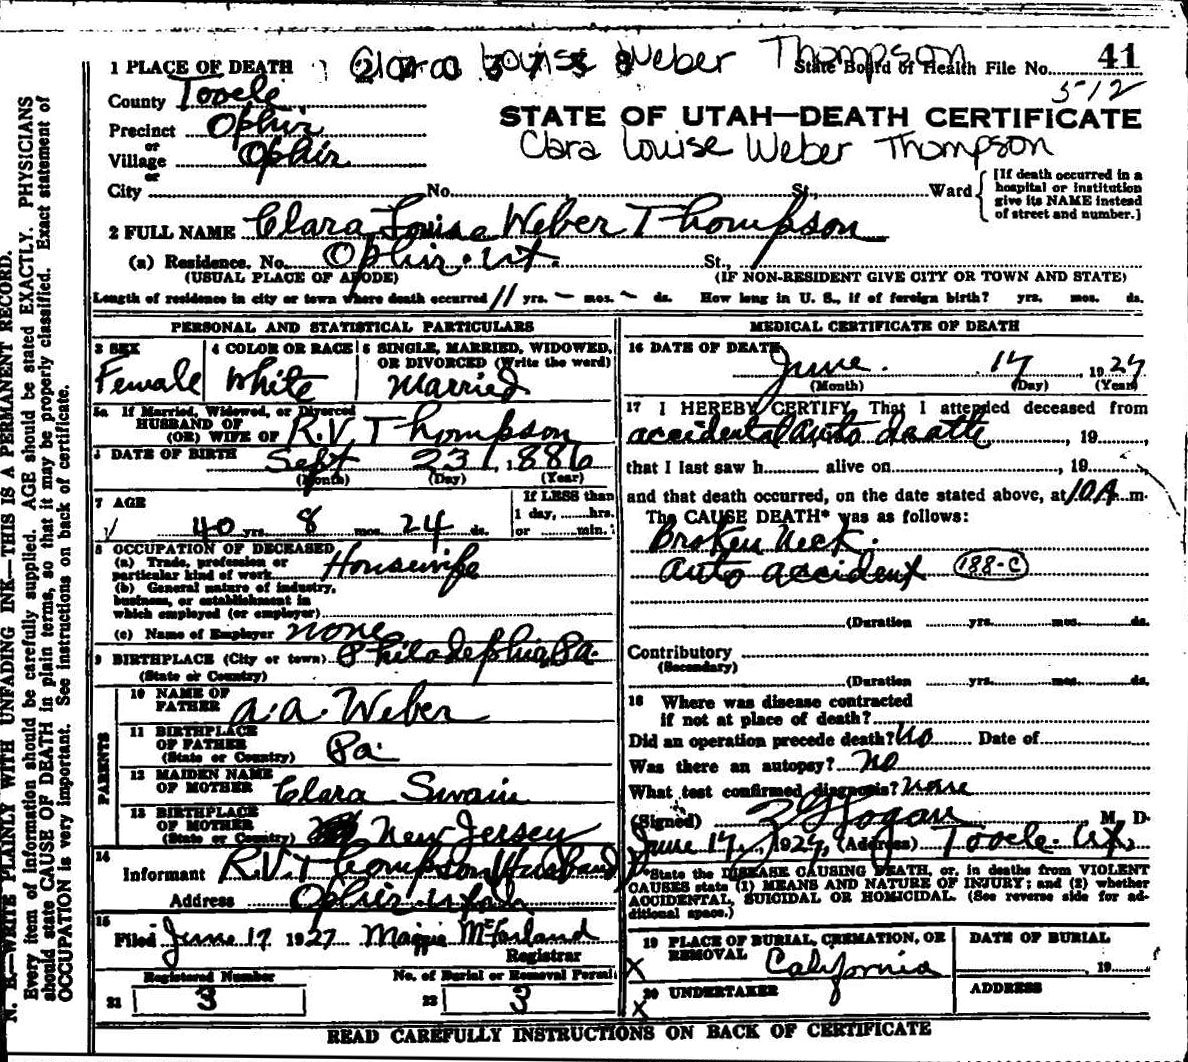 Clara Louise Weber Thompson
41
1 PLACE OF DEATH
State Board of Health File No.
512
County Tooele
STATE OF UTAH—DEATH CERTIFICATE
Precinct Ophir
or
Village Ophir
or
Clara Louise Weber Thompson
City No. St. Ward
[If death occurred in a
hospital or institution
give its NAME instead
of street and number.]
2 FULL NAME Clara Louise Weber Thompson
(a) Residence. No. Ophir. Ut. St.,
(USUAL PLACE OF ABODE) (IF NON-RESIDENT GIVE CITY OR TOWN AND STATE)
Length of residence in city or town where death occurred 11 yrs. — mos. — ds. How long in U. S., if of foreign birth? yrs. mos. ds.
PERSONAL AND STATISTICAL PARTICULARS
3 SEX
Female
4 COLOR OR RACE
White
5 SINGLE, MARRIED, WIDOWED,
OR DIVORCED (Write the word)
Married
5a If Married, Widowed, or Divorced
HUSBAND OF
(OR) WIFE OF R.V. Thompson
6 DATE OF BIRTH Sept 23, 1886
(Month) (Day) (Year)
7 AGE
40 yrs. 8 mos. 24 ds.
If LESS than
1 day, hrs.
or min.
8 OCCUPATION OF DECEASED
(a) Trade, profession or
particular kind of work Housewife
(b) General nature of industry,
business, or establishment in
which employed (or employer)
(c) Name of Employer none
9 BIRTHPLACE (City or town) Philadelphia, Pa.
(State or Country)
PARENTS
10 NAME OF
FATHER A. A. Weber
11 BIRTHPLACE
OF FATHER
(State or Country) Pa.
12 MAIDEN NAME
OF MOTHER Clara Swain
13 BIRTHPLACE
OF MOTHER
(State or Country) New Jersey
14
Informant R.V. Thompson Husband
Address Ophir Utah
15
Filed June 17 1927 Maggie McFarland
Registrar
Registered Number
21 3
No. of Burial or Removal Permit
22 3
MEDICAL CERTIFICATE OF DEATH
16 DATE OF DEATH
June. 17, 1927
(Month) (Day) (Year)
17 I HEREBY CERTIFY, That I attended deceased from
accidental auto death, 19
that I last saw h alive on, 19
and that death occurred, on the date stated above, at 10 A. m.
The CAUSE DEATH* was as follows:
Broken Neck.
auto accident 188-C
(Duration yrs. mos. ds.
Contributory
(Secondary)
(Duration yrs. mos. ds.
18 Where was disease contracted
if not at place of death?
Did an operation precede death? No Date of
Was there an autopsy? No
What test confirmed diagnosis? None
(Signed) M. D.
June 17, 1927, (Address) Tooele. Ut.
*State the DISEASE CAUSING DEATH, or, in deaths from VIOLENT
CAUSES state (1) MEANS AND NATURE OF INJURY; and (2) whether
ACCIDENTAL, SUICIDAL OR HOMICIDAL. (See reverse side for ad-
ditional space.)
19 PLACE OF BURIAL, CREMATION, OR
REMOVAL California
DATE OF BURIAL
19
X
20 UNDERTAKER
X
ADDRESS
READ CAREFULLY INSTRUCTIONS ON BACK OF CERTIFICATE
N. B.—WRITE PLAINLY WITH UNFADING INK—THIS IS A PERMANENT RECORD.
Every item of information should be carefully supplied. AGE should be stated EXACTLY. PHYSICIANS
should state CAUSE OF DEATH in plain terms, so that it may be properly classified. Exact statement of
OCCUPATION is very important. See instructions on back of certificate.